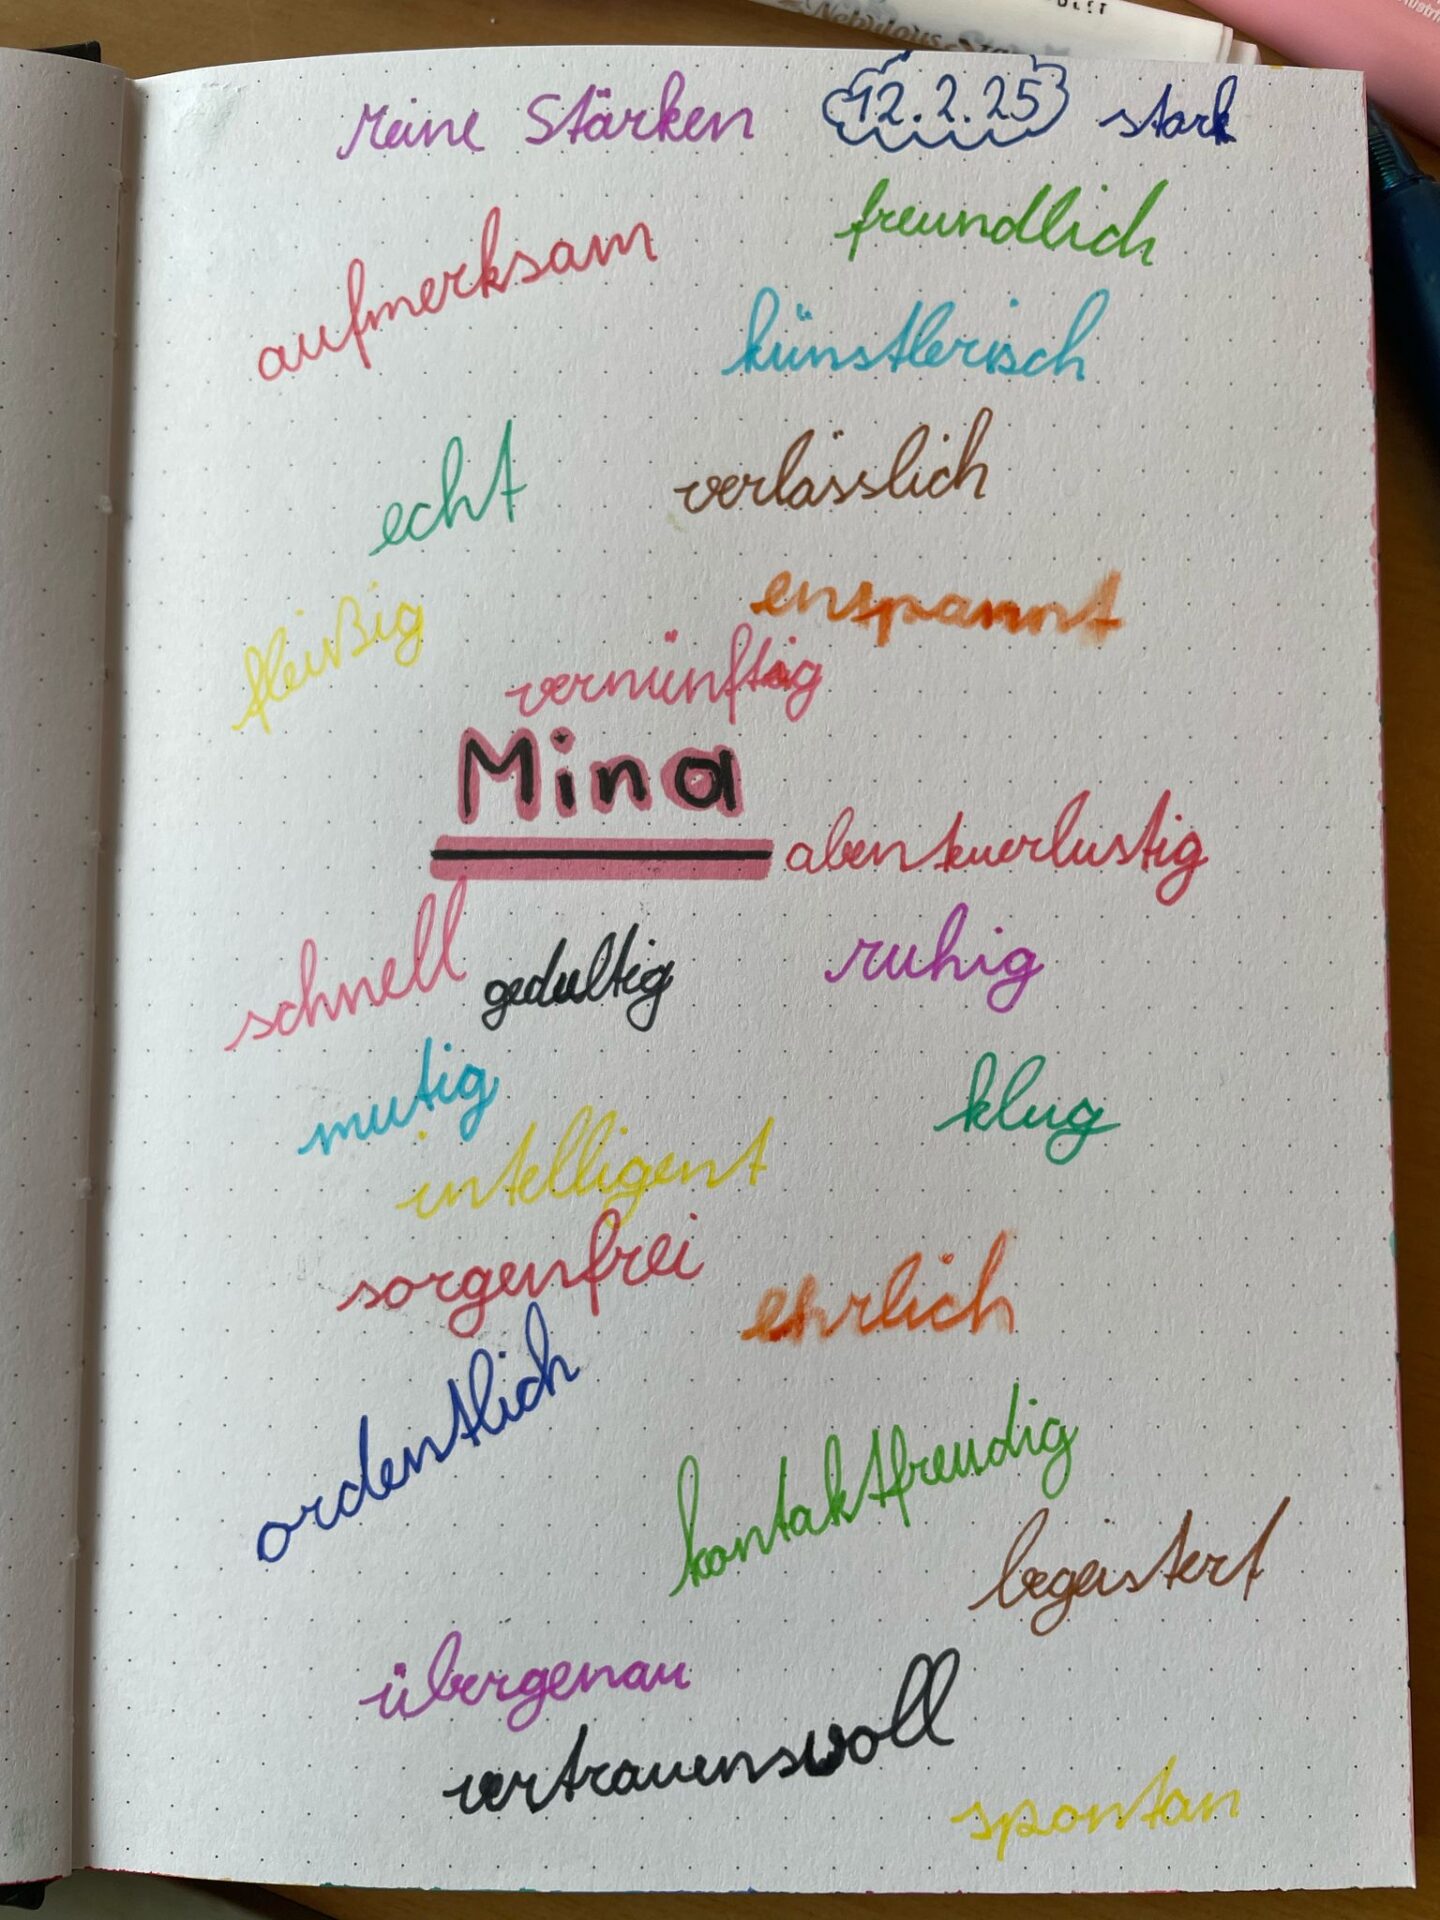 Nebulous Stars
meine Stärken 12.2.25 stark
freundlich
aufmerksam
künstlerisch
echt verlässlich
enspannt
fleißig
vernünftig
Mina
abenteuerlustig
schnell gedultig ruhig
mutig klug
intelligent
sorgenfrei ehrlich
ordentlich
kontaktfreudig
begeistert
übergenau
vertrauenswoll
spontan